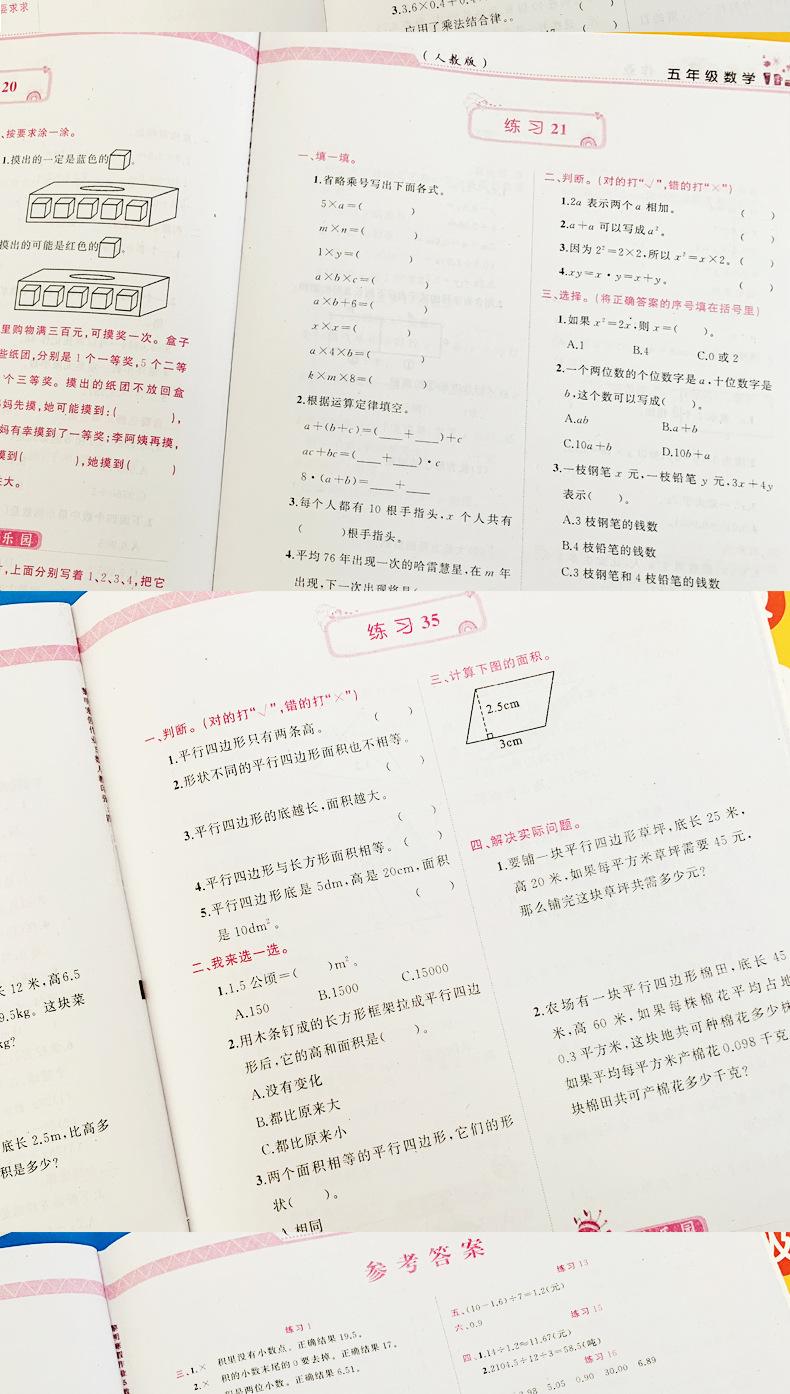 要求求
3.3.6×0.4+0.4
应用了乘法结合律。
20
、按要求涂一涂。
1.摸出的一定是蓝色的
。
摸出的可能是红色的
。
里购物满三百元,可摸奖一次。盒子
些纸团,分别是1个一等奖,5个二等
个三等奖。摸出的纸团不放回盒
妈先摸,她可能摸到:( ),
妈有幸摸到了一等奖;李阿姨再摸,
摸到( ),她摸到( )
大。
乐园
,上面分别写着1、2、3、4,把它
(人教版)
五年级数学
练习21
一、填一填。
1.省略乘号写出下面各式。
5×a=( )
m×n=( )
1×y=( )
a×b×c=( )
a×b+6=( )
x×x=( )
a×4×b=( )
k×m×8=( )
2.根据运算定律填空。
a+(b+c)=(___+___)+c
ac+bc=(___+___)·c
8·(a+b)=___+___
3.每个人都有10根手指头,x个人共有
( )根手指头。
4.平均76年出现一次的哈雷慧星,在m年
出现,下一次出现将是(
二、判断。(对的打“√”,错的打“×”)
1.2a表示两个a相加。 ( )
2.a+a可以写成a²。 ( )
3.因为2²=2×2,所以x²=x×2。( )
4.xy=x·y=x+y。 ( )
三、选择。(将正确答案的序号填在括号里)
1.如果x²=2x,则x=( )。
A.1 B.4 C.0或2
2.一个两位数的个位数字是a,十位数字是
b,这个数可以写成( )。
A.ab B.a+b
C.10a+b D.10b+a
3.一枝钢笔x元,一枝铅笔y元,3x+4y
表示( )。
A.3枝钢笔的钱数
B.4枝铅笔的钱数
C.3枝钢笔和4枝铅笔的钱数
长12米,高6.5
9.5kg。这块菜
kg?
底长2.5m,比高多
积是多少?
练习35
一、判断。(对的打“√”,错的打“×”)
1.平行四边形只有两条高。 ( )
2.形状不同的平行四边形面积也不相等。
( )
3.平行四边形的底越长,面积越大。
( )
4.平行四边形与长方形面积相等。( )
5.平行四边形底是5dm,高是20cm,面积
是10dm²。 ( )
二、我来选一选。
1.1.5公顷=( )m²。
A.150 B.1500 C.15000
2.用木条钉成的长方形框架拉成平行四边
形后,它的高和面积是( )。
A.没有变化
B.都比原来大
C.都比原来小
3.两个面积相等的平行四边形,它们的形
状( )。
A.相同
三、计算下图的面积。
2.5cm
3cm
四、解决实际问题。
1.要铺一块平行四边形草坪,底长25米,
高20米,如果每平方米草坪需要45元,
那么铺完这块草坪共需多少元?
2.农场有一块平行四边形棉田,底长45
米,高60米,如果每株棉花平均占地
0.3平方米,这块地共可种棉花多少株
如果平均每平方米产棉花0.098千克
块棉田共可产棉花多少千克?
园
参考答案
练习1
三、1.× 积里没有小数点。正确结果19.5。
2.× 积的小数末尾的0要去掉。正确结果17。
积是两位小数。正确结果6.51。
练习13
五、(10-1.6)÷7=1.2(元)
六、0.9
练习15
四、1.14÷1.2≈11.67(元)
2.2104.5÷12÷3=58.5(吨)
练习16
3.98 5.05 0.90 30.00 6.89